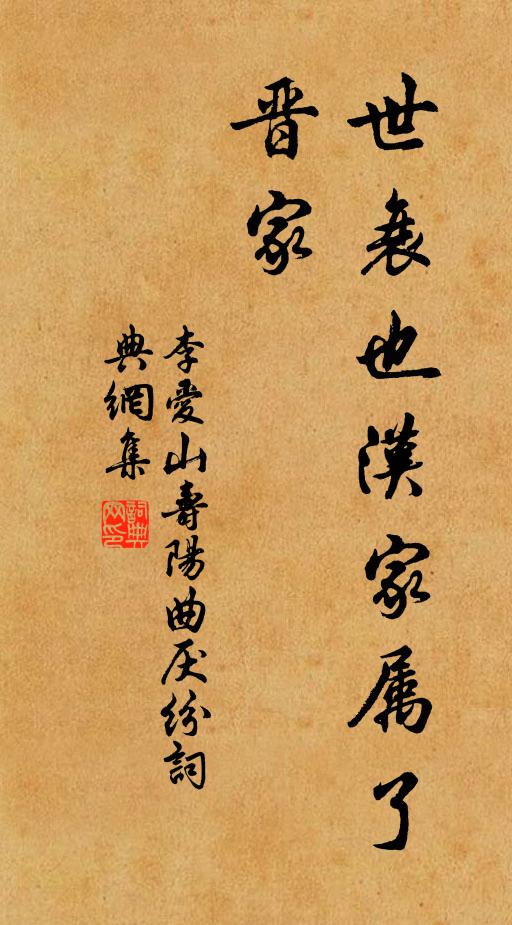 世衰也漢家属了
晋家
李愛山壽陽曲厌纷詞
典網集
詞典
网印